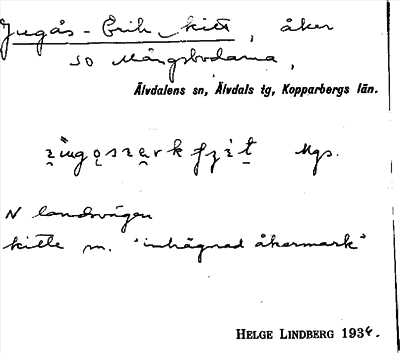 Jugås-Erik kitt, åker
SO Mångsbodarna,
Älvdalens sn, Älvdals tg, Kopparbergs län.
Mgs.
N landsvägen
kitte m. "inhägnad åkermark"
HELGE LINDBERG 1934.